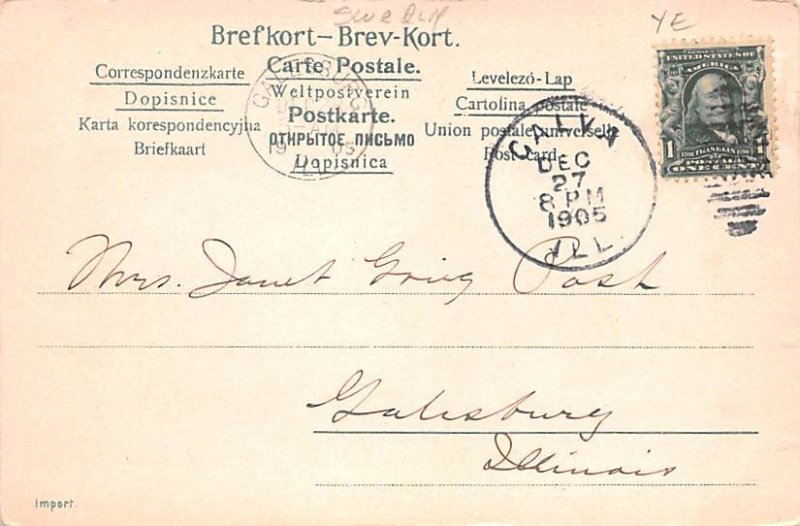 Sweden
YE
Brefkort – Brev-Kort.
Carte Postale.
Correspondenzkarte
Dopisnice
Karta korespondencyjna
Briefkaart
Weltpostverein
Postkarte.
ОТКРЫТОЕ ПИСЬМО
Dopisnica
Levelező-Lap
Cartolina postale
Union postale universelle
Post card
GALESBURG
ILL.
GALVA
DEC
27
8 PM
1905
ILL.
UNITED STATES OF
AMERICA
1 FRANKLIN 1
POSTAGE
ONE CENT
Mrs. Janet Greig Post
Galesburg
Illinois
Import.